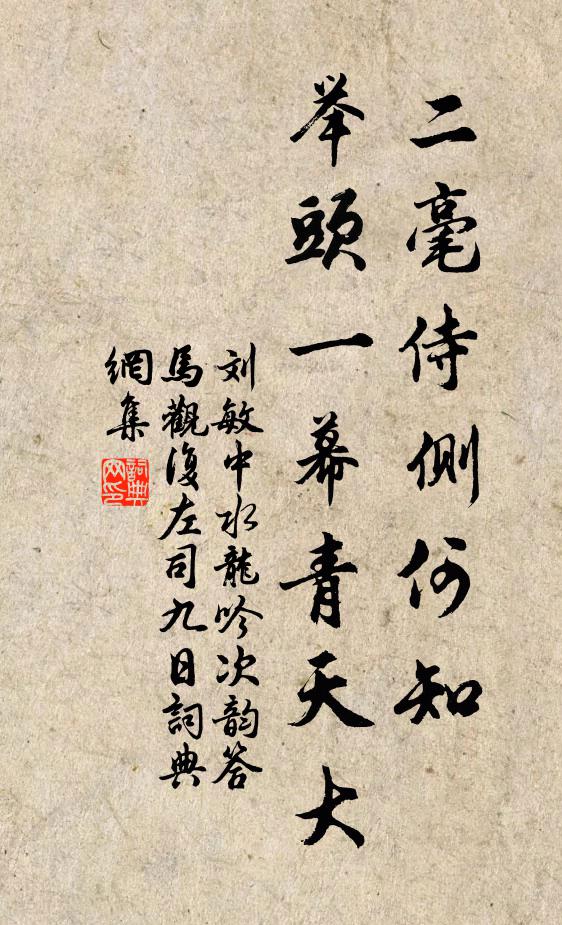 二毫侍侧何知
举頭一幕青天大
刘敏中水龍吟次韵答
馬觀復左司九日詞典
網集
詞典
网印